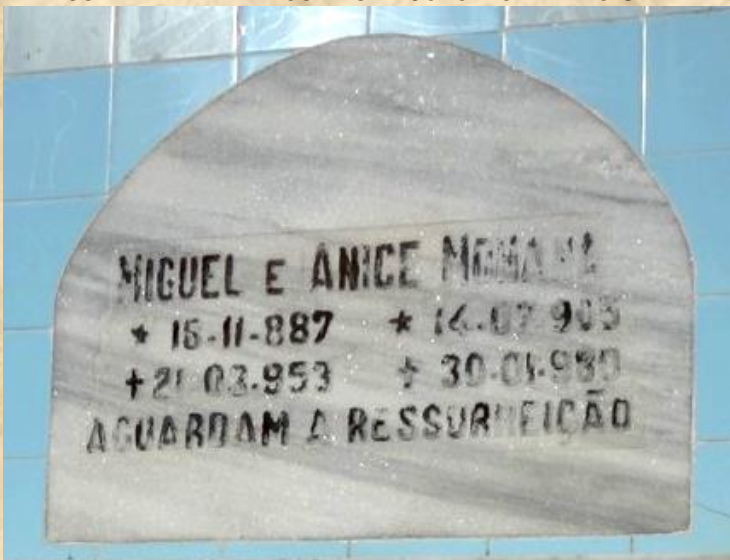 MIGUEL E ANICE
* 15-11-887
+ 21-03-953 + 30-01-980
AGUARDAM A RESSURREIÇÃO